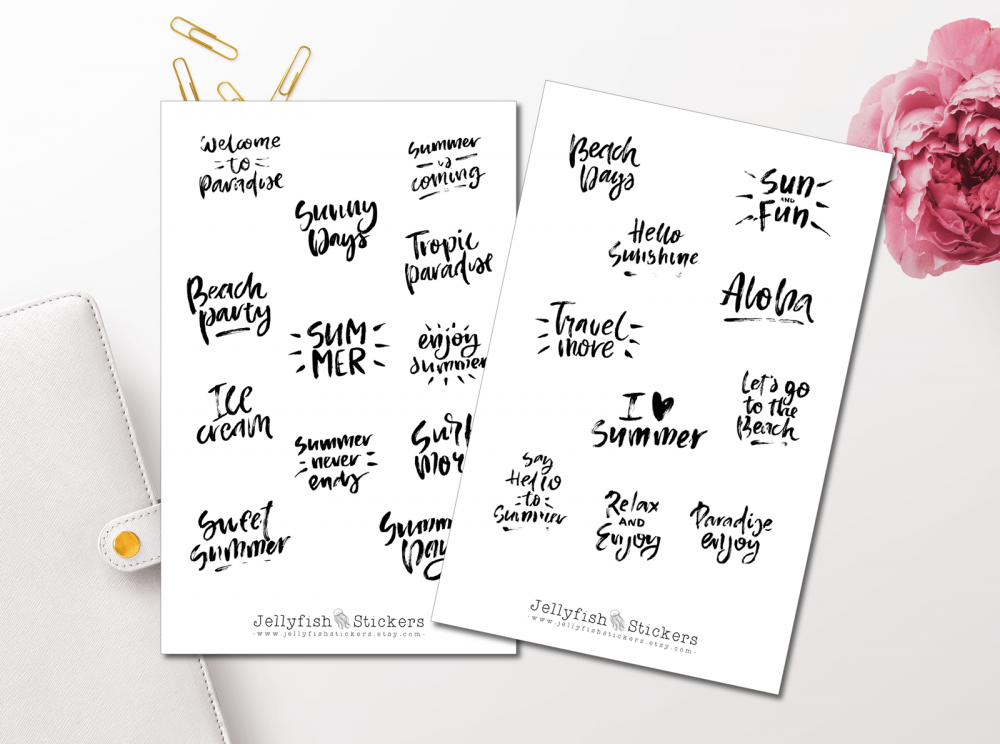 Welcome
to
Paradise
Summer
is
coming
Sunny
Days
Tropic
paradise
Beach
party
SUM
MER
enjoy
summer
Ice
cream
Summer
never
ends
Surf
Mor
Sweet
Summer
Summ
Day
Jellyfish Stickers
-www.jellyfishstickers.etsy.com-
Beach
Days
Sun
AND
Fun
Hello
Sunshine
Aloha
Travel
more
I ♥
Summer
Let's go
to the
Beach
Say
Hello
to
Summer
Relax
AND
Enjoy
Paradise
enjoy
Jellyfish Stickers
-www.jellyfishstickers.etsy.com-